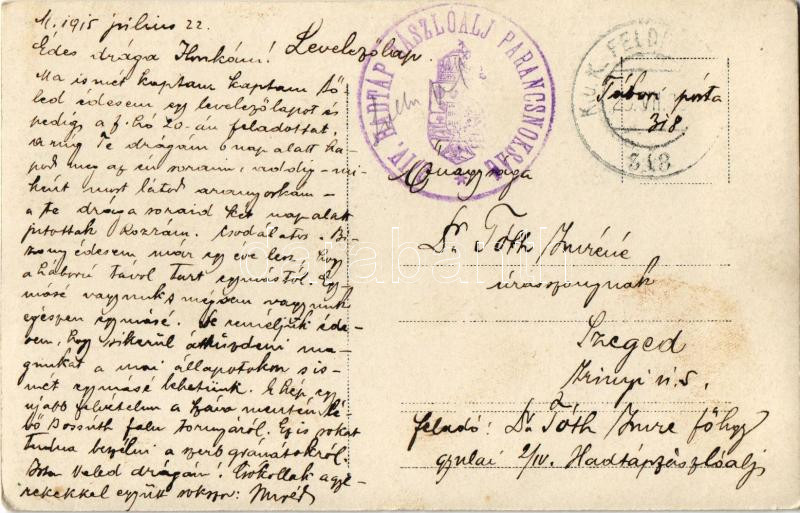 M. 1915 július 22.
Édes drága Imkám! Levelezőlap.
Ma ismét kaptam kaptam Tő
led édesem egy levelezőlapot és
pedig a f. hó 20.-án feladottat,
míg Te drágám 6 nap alatt ka-
pod meg az én soraim, addig - mi-
ként most látod aranyoskám -
a te drága soraid két nap alatt
jutottak hozzám. Csodálatos. Bi-
zony édesem, már egy éve lesz, hogy
a háború távol tart egymástól. Egy-
másé vagyunk s mégsem vagyunk
egészen egymásé. De reméljük éde-
sem, hogy sikerül átküzdeni ma-
gunkat a mai állapotokon s is-
mét egymásé lehetünk. E kép egy
újabb felvétel a Száva mentén lé-
vő Bossuth falu tornyáról. Ez is sokat
tudna beszélni a szerb gránátokról.
Isten Veled drágám! Csókollak a gye-
rekekkel együtt sokszor: Imréd
IV. HADTÁP ZÁSZLÓALJ PARANCSNOKSÁG
K.u.K. FELDP
318
Tábori posta
318
Őnagysága
Dr. Tóth Imréné
úrasszonynak
Szeged
Zrinyi u. 5.
feladó: Dr. Tóth Imre főhgy
gyulai 2/IV. Hadtápzászlóalj